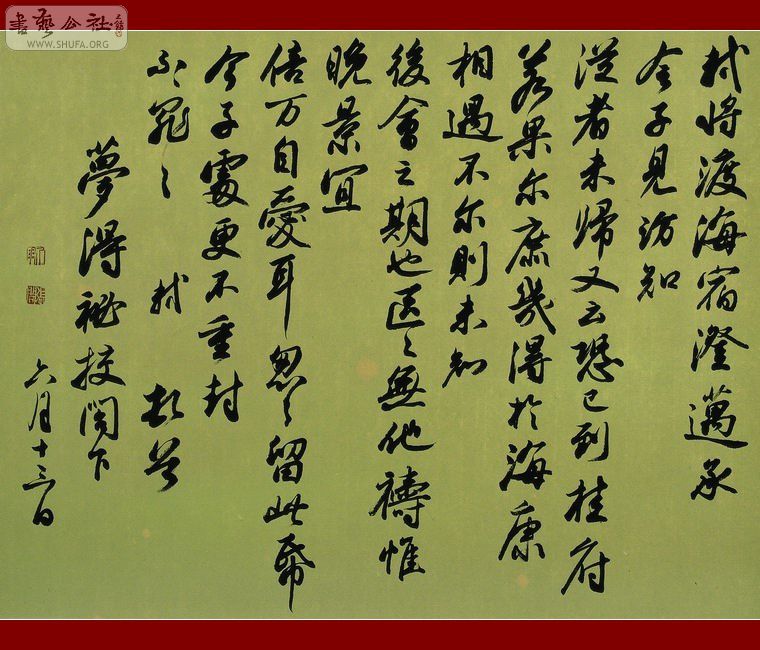 書藝公社
WWW.SHUFA.ORG
軾將渡海宿澄邁承
令子見訪知
從者未歸又云恐已到桂府
若果尔庶幾得於海康
相遇不尔則未知
後會之期也區々無他禱惟
晚景宜
倍万自愛耳忽々留此帋
令子處更不重封
不罪々 軾 頓首
夢得祕校閣下
六月十三日